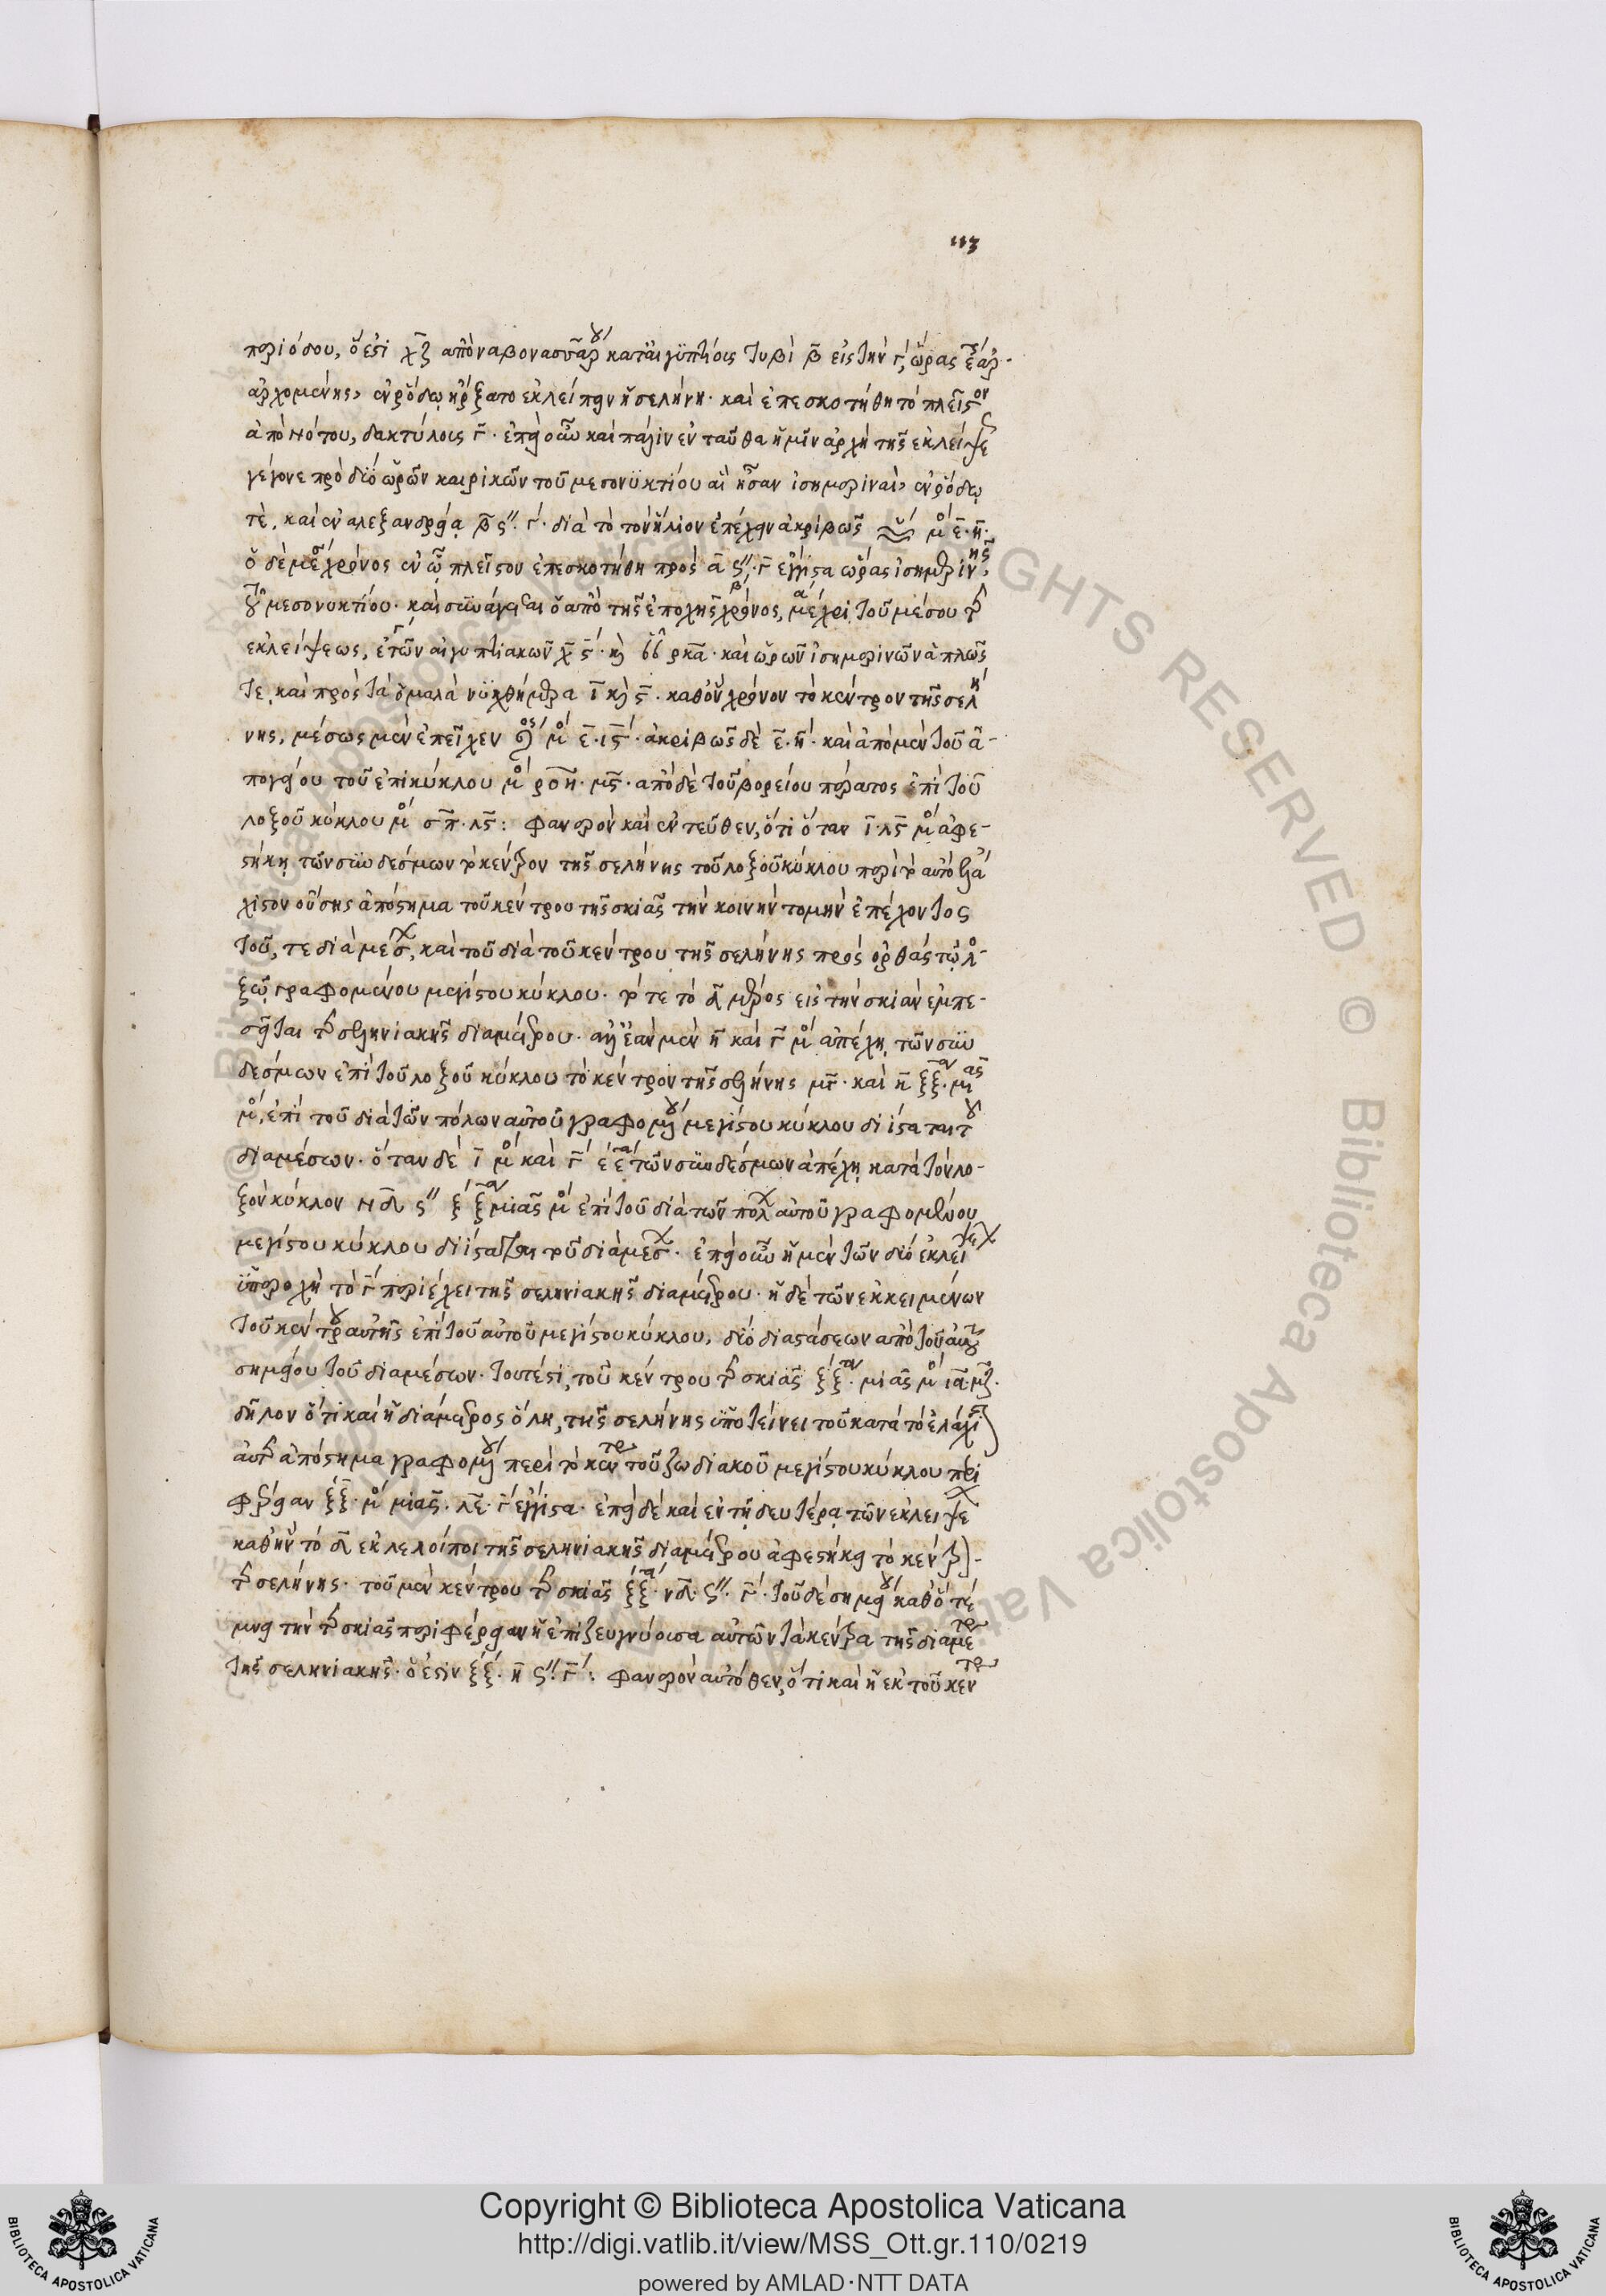 113
περιόδου, ὅ ἐστι χ̅ζ̅ ἀπὸ ναβονασσάρου κατ' αἰγυπτίους τυβὶ β̅ εἰς τὴν γ΄, ὥρας
ἀρχομένης, ἐν ῥόδῳ ἤρξατο ἐκλείπειν ἡ σελήνη. καὶ ἐπεσκοτήθη τὸ πλεῖστον
ἀπὸ νότου, δακτύλους γ̅. ἐπεὶ οὖν καὶ πάλιν ἐνταῦθα ἡμῖν ἀρχὴ τῆς ἐκλείψε
γέγονε πρὸ δύο ὡρῶν καιρικῶν τοῦ μεσονυκτίου αἳ ἦσαν ἰσημεριναὶ, ἐν ῥόδῳ
τὲ, καὶ ἐν ἀλεξανδρείᾳ β̅ ς''. γ΄. διὰ τὸ τὸν ἥλιον ἐπέχειν ἀκριβῶς ♒ μο ε̅. η̅.
ὁ δὲ μέσος χρόνος ἐν ᾧ πλεῖστον ἐπεσκοτήθη πρὸς α̅ ς''. γ̅ ἔγγιστα ὥρας ἰσημερινῆς,
τοῦ μεσονυκτίου. καὶ συνάγεται ὁ ἀπὸ τῆς ἐποχῆς χρόνος, μέχρι τοῦ μέσου τῆς
ἐκλείψεως, ἐτῶν αἰγυπτιακῶν χ̅ς̅. καὶ ρκ̅α̅. καὶ ὡρῶν ἰσημερινῶν ἁπλῶς
τε, καὶ πρὸς τὰ ὁμαλὰ νυχθήμερα ι̅ καὶ ς̅. καθ' ὃν χρόνον τὸ κέντρον τῆς σελή
νης, μέσως μὲν ἐπεῖχεν μο ε̅. ις̅. ἀκριβῶς δὲ ε̅. η̅. καὶ ἀπὸ μὲν τοῦ ἀ-
πογείου τοῦ ἐπικύκλου μο ρο̅η̅. μς̅. ἀπὸ δὲ τοῦ βορείου πέρατος ἐπὶ τοῦ
λοξοῦ κύκλου μο σ̅π̅. λς̅: φανερὸν καὶ ἐντεῦθεν, ὅτι ὅταν ι̅. λς̅ μο ἀφε-
στήκῃ τῶν συνδέσμων τὸ κέντρον τῆς σελήνης τοῦ λοξοῦ κύκλου περὶ τὸ αὐτὸ ἐλά
χιστον οὔσης ἀπόστημα τοῦ κέντρου τῆς σκιᾶς τὴν κοινὴν τομὴν ἐπέχοντος
τοῦ, τε διὰ μέσων, καὶ τοῦ διὰ τοῦ κέντρου τῆς σελήνης πρὸς ὀρθὰς τῷ λο-
ξῷ γραφομένου μεγίστου κύκλου. τότε τὸ δ̅ μέρος εἰς τὴν σκιὰν ἐμπε-
σεῖται τῆς σεληνιακῆς διαμέτρου. ἀλλ' ἐὰν μὲν η̅ καὶ γ̅ μο ἀπέχῃ τῶν συν
δέσμων ἐπὶ τοῦ λοξοῦ κύκλου τὸ κέντρον τῆς σελήνης μγ̅. καὶ η̅ ξξ. μιᾶς
μο, ἐπὶ τοῦ διὰ τῶν πόλων αὐτοῦ γραφομένου μεγίστου κύκλου διίσταται τοῦ
διαμέσων. ὅταν δὲ ι̅ μο καὶ γ̅ εε τῶν συνδέσμων ἀπέχῃ κατὰ τὸν λο-
ξὸν κύκλον νδ̅ ς'' ξξ μιᾶς μο ἐπὶ τοῦ διὰ τῶν πόλων αὐτοῦ γραφομένου
μεγίστου κύκλου διίσταται τοῦ διὰ μέσων. ἐπεὶ οὖν ἡ μὲν τῶν δύο ἐκλείψεων
ὑπεροχὴ τὸ γ̅ περιέχει τῆς σεληνιακῆς διαμέτρου. ἡ δὲ τῶν ἐκκειμένων
τοῦ κέντρου αὐτῆς ἐπὶ τοῦ αὐτοῦ μεγίστου κύκλου, δύο διαστάσεων ἀπὸ τοῦ αὐτοῦ
σημείου τοῦ διαμέσων. τουτέστι, τοῦ κέντρου τῆς σκιᾶς ξξ. μιᾶς μο ια̅. μζ̅.
δῆλον ὅτι καὶ ἡ διάμετρος ὅλη, τῆς σελήνης ὑποτείνει τοῦ κατὰ τὸ ἐλάχι
αὐτῆς ἀπόστημα γραφομένου περὶ τὸ κέντρον τοῦ ζωδιακοῦ μεγίστου κύκλου περι
φέρειαν ξξ. μο μιᾶς. λε̅. γ̅ ἔγγιστα. ἐπεὶ δὲ καὶ ἐν τῇ δευτέρᾳ τῶν ἐκλείψεων
καθ' ἣν τὸ δ̅ ἐκλελοίποι τῆς σεληνιακῆς διαμέτρου ἀφεστήκει τὸ κέντρον
τῆς σελήνης. τοῦ μὲν κέντρου τῆς σκιᾶς ξξ. νδ̅. ς''. γ̅. τοῦ δὲ σημείου καθ' ὃ τέ
μνει τὴν τῆς σκιᾶς περιφέρειαν ἡ ἐπιζευγνύουσα αὐτῶν τὰ κέντρα τῆς διαμέτρου
τῆς σεληνιακῆς. ὅ ἐστιν ξξ. η̅ ς''. γ̅: φανερὸν αὐτόθεν, ὅτι καὶ ἡ ἐκ τοῦ κέντρου
Copyright © Biblioteca Apostolica Vaticana
http://digi.vatlib.it/view/MSS_Ott.gr.110/0219
powered by AMLAD·NTT DATA
BIBLIOTECA APOSTOLICA VATICANA
BIBLIOTECA APOSTOLICA VATICANA